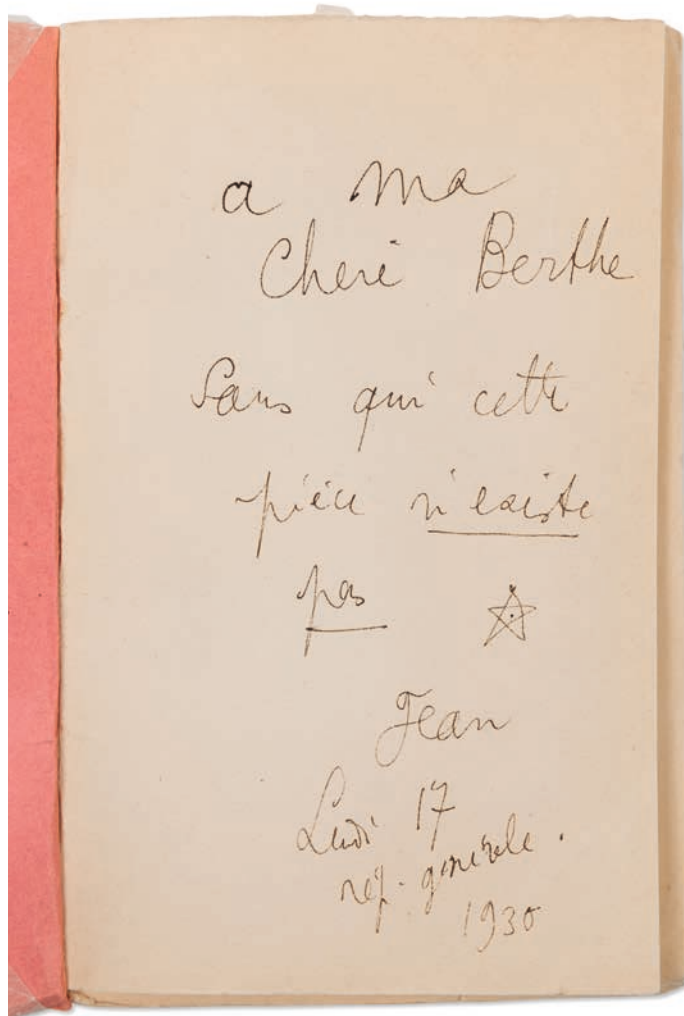 a ma
Cheri Berthe
Sans qui cette
pièce n'existe
pas
Jean
Lundi 17
rép. générale.
1930